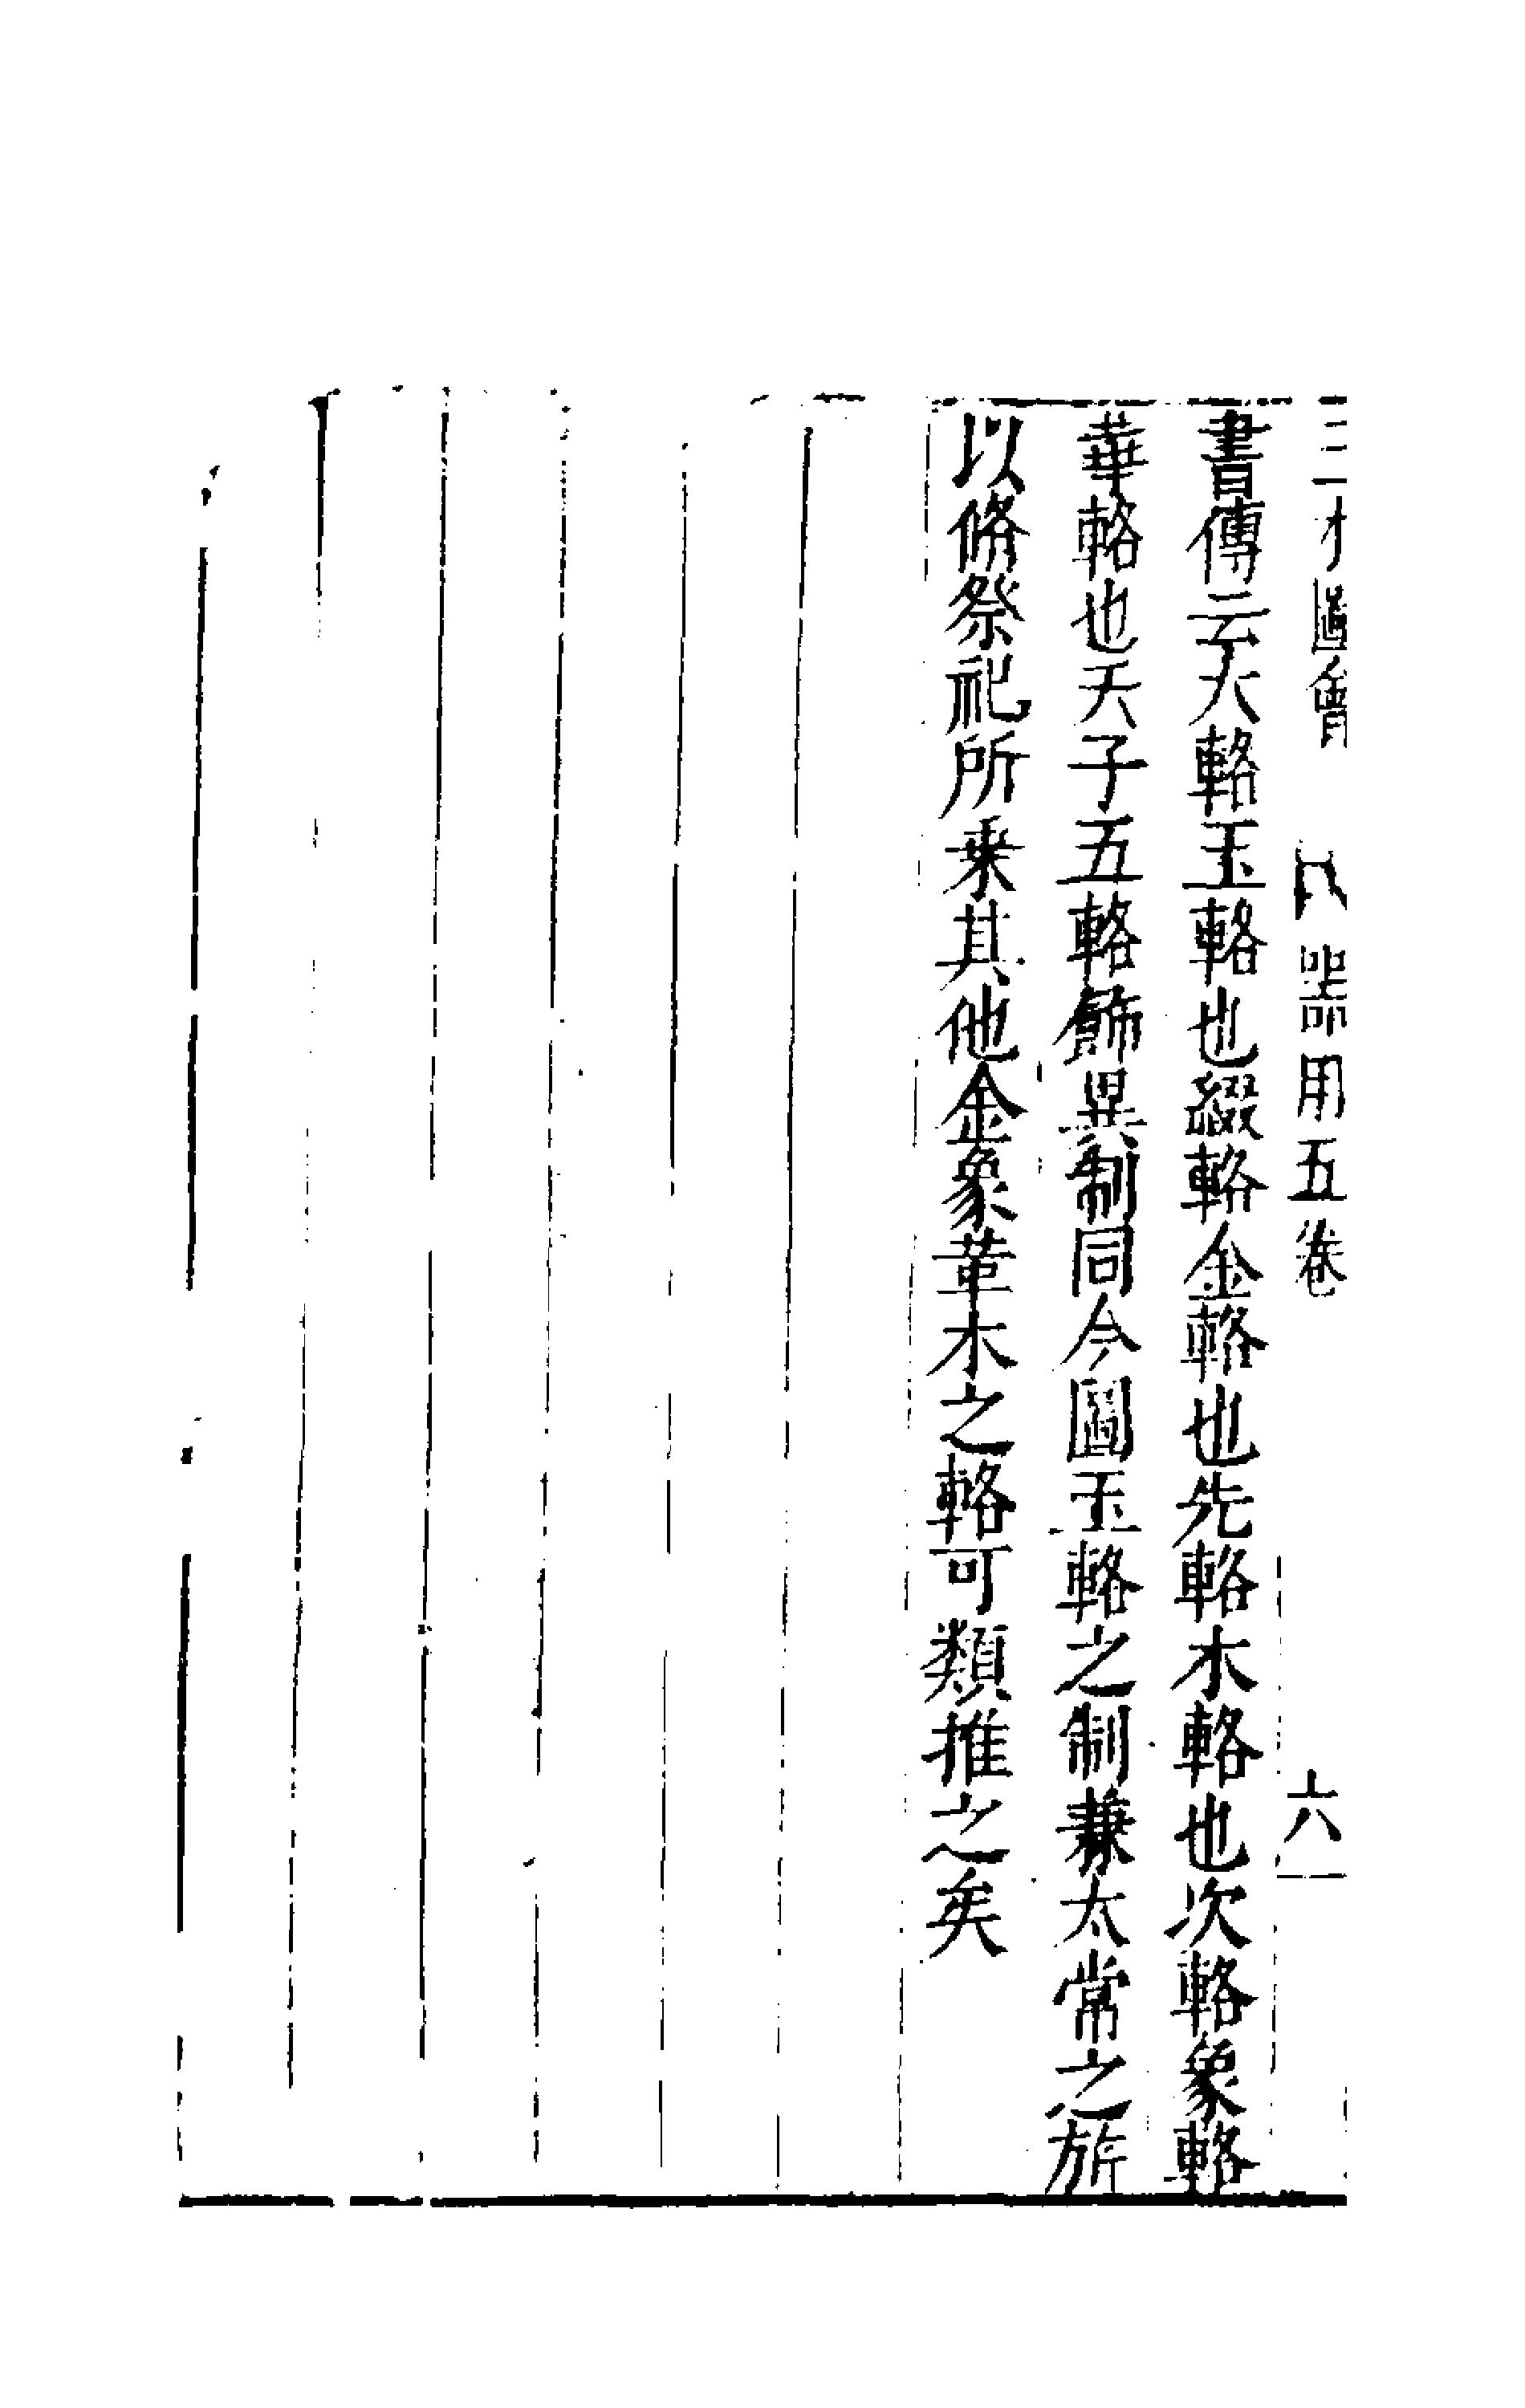 三才圖會 器用五卷 六
書傳云大輅玉輅也綴輅金輅也先輅木輅也次輅象輅
革輅也天子五輅飾異制同今圖玉輅之制兼太常之旂
以俻祭祀所乗其他金象革木之輅可類推之矣